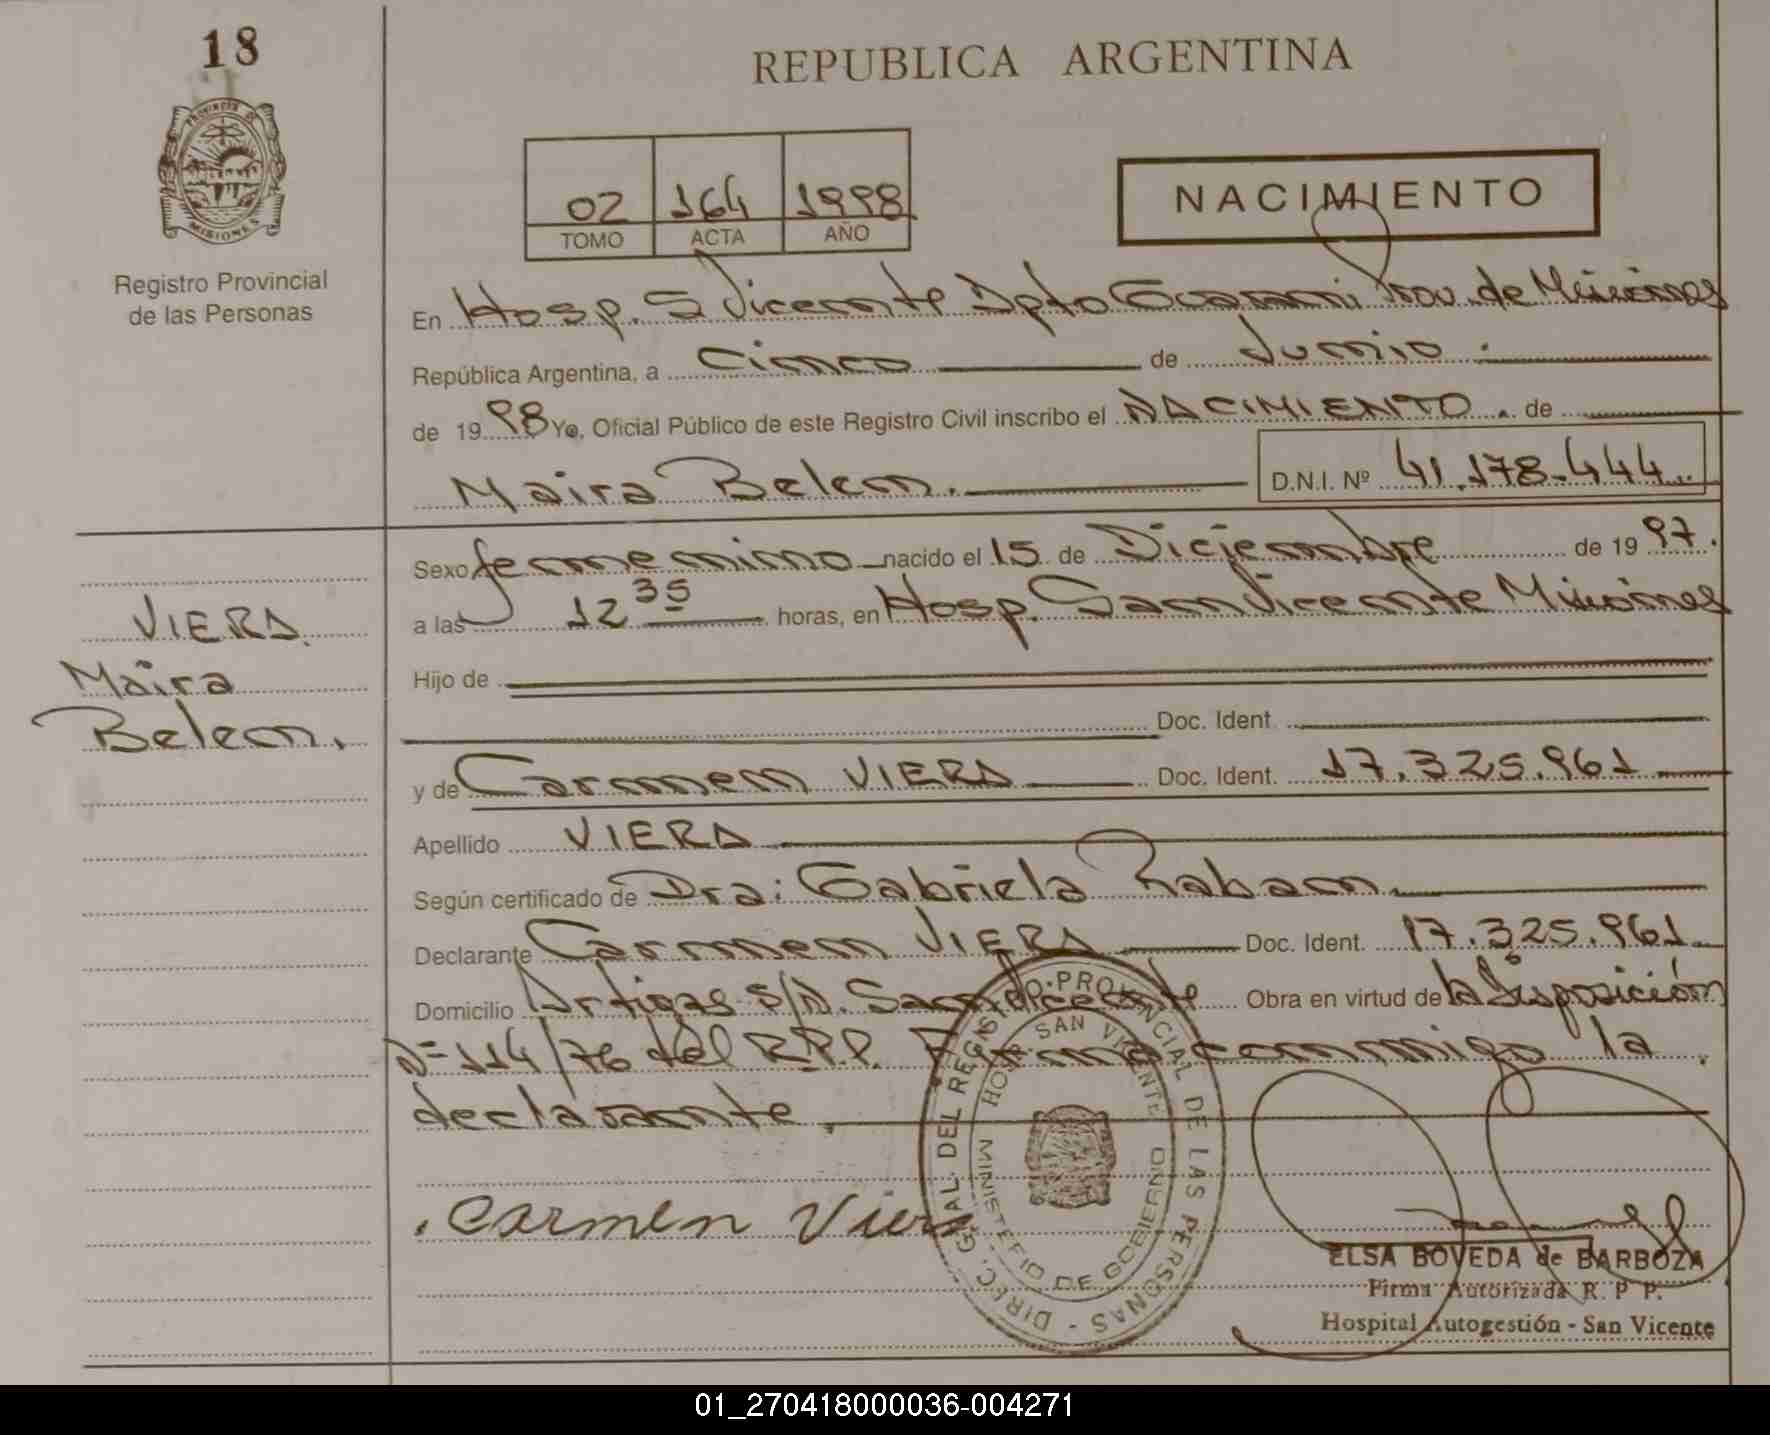 18
REPUBLICA ARGENTINA
PROVINCIA DE
MISIONES
Registro Provincial
de las Personas
02 164 1998
TOMO ACTA AÑO
NACIMIENTO
En Hosp. S Vicente Dpto Guarani Prov. de Misiones
República Argentina, a cinco de Junio.
de 1998 Yo, Oficial Público de este Registro Civil inscribo el NACIMIENTO. de
Maira Belen. D.N.I. Nº 41.178.444
Sexo femenino nacido el 15 de Diciembre de 1997.
a las 12 35 horas, en Hosp. San Vicente Misiones
VIERA
Maira
Belen.
Hijo de
Doc. Ident.
y de Carmen VIERA Doc. Ident. 17.325.961
Apellido VIERA
Según certificado de Dra: Gabriela Raban.
Declarante Carmen VIERA Doc. Ident. 17.325.961
Domicilio Artigas S/N. San Vicente Obra en virtud de la Disposición
Nº 114/76 del R.P.P. Firma conmigo la
declarante.
Carmen Viera
DIREC. GRAL. DEL REGISTRO PROVINCIAL DE LAS PERSONAS -
HOSP SAN VICENTE
MINISTERIO DE GOBIERNO
ELSA BOVEDA de BARBOZA
Firma Autorizada R. P P.
Hospital Autogestión - San Vicente
01_270418000036-004271